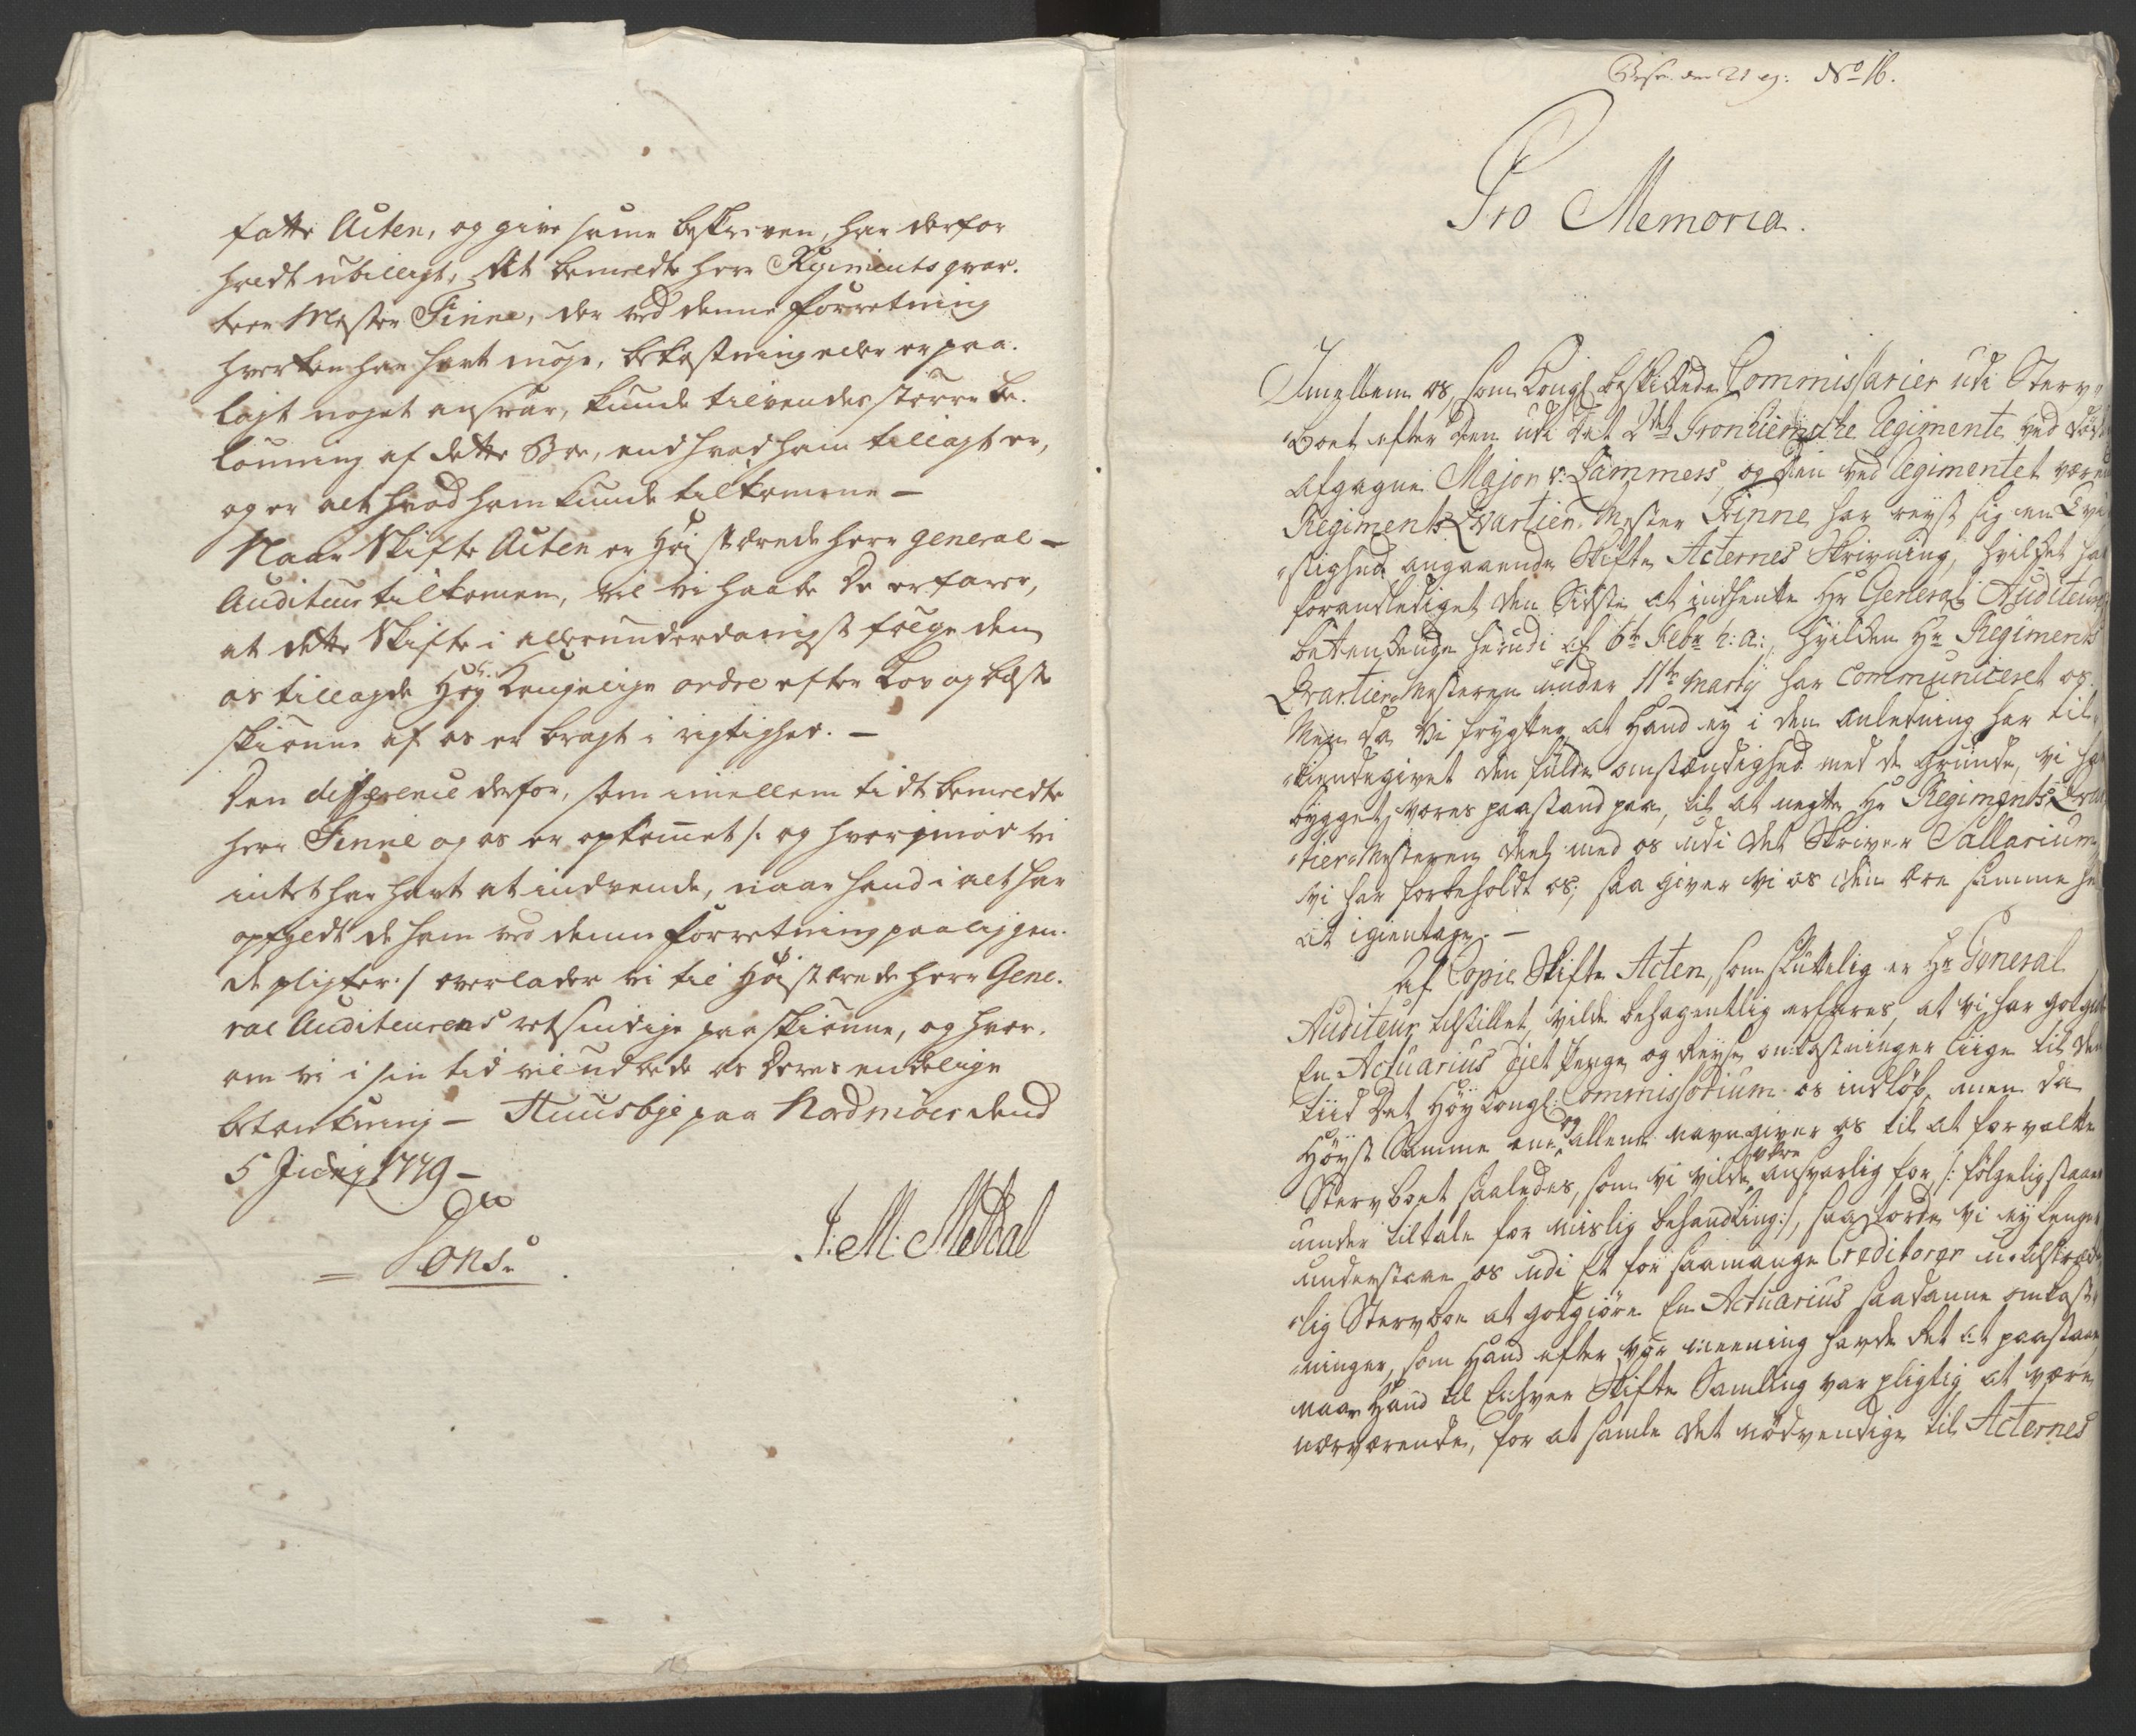 fatte Acten, og give samme beskreven, har derfor
holdt ubilligt, At bemeldte Herr Regiments qvar-
teer Mester Finne, der ved denne Forretning
hverken har havt møye, bekostning eller er paa-
lagt noget ansvar, kunde tilvendes større be-
lønning af dette Boe, end hvad ham tillagt er,
og er alt hvad ham kunde tilkomme —
Naar Skifte Acten er Høystærede Herr General-
Auditeur tilkommen, vil vi haabe De erfarer,
at dette Skifte i allerunderdanigst følge den
os tillagde Høy Kongelige ordre efter Lov og beste
skiønne af os er bragt i rigtighed. —
Den difference derfor, som imellem tidtbemeldte
Herr Finne og os er opkommet /: og hvorimod vi
intet har havt at indvende, naar hand i alt har
opfyldt de ham ved denne Forretning paaliggen-
de pligter :/ overlader vi til Høistærede Herr Gene-
ral Auditeurens retsindige paaskiønne, og hvor-
om vi i sin tid vil udbede os Deres endelige
betænkning — Stuusbye paa Nordmøer dend
5 Juny 1779 —
Tons.
J: M: Metzal
No 16.
Pro Memoria.
Imellem os, som Kongl. beskikkede Commissarier udi Sterv-
Boet efter den udi Det 2det Tronhiemske Regimente ved døden
afgagne Major v: Lammers, og den ved Regimentet værende
Regiments Qvartier-Mester Finne har reyst sig en Tvi-
stighed angaaende Skifte Acternes Skrivning, hvilket har
foranlediget den Sidste at indhente Hr General Auditeurens
betænkende herudi af 6te Febr: h: a:, hvilken Hr Regiments
Qvartier-Mesteren under 11te Marty har Communiceret os.
Men da vi frygter at Hand ey i den anledning har til-
kiendegivet den fulde omstændighed med de grunde, vi har
bygget vores paastand paa, til at negte Hr Regiments Qvar-
tier-Mesteren deel med os udi det Skriver Sallarium
vi har forbeholdt os; saa giver vi os den ære samme her
at igientage. —
Af Copie Skifte Acten, som sluttelig er Hr General
Auditeur tilstillet, vilde behagentlig erfares, at vi har godgiort
En Actuarius Diet Penge og Reyse omkostninger liige til den
tiid Det Høy Kongl: Commissorium os indløb, men da
Høyst Samme ene og allene navngiver os til at forvalte
Stervboet saaledes, som vi vilde være ansvarlig for /: følgelig staae
under tiltale for mislig behandling :/, saa torde vi ey lenger
understaae os udi Et for saamange Creditorer utilstræk-
lig Stervboe at godgiøre En Actuarius saadanne omkost-
ninger, som Hand efter vor meening havde Ret at paastaae
naar Hand til Enhver Skifte Samling var pligtig at være
nærværende, for at samle det nødvendige til Acternes